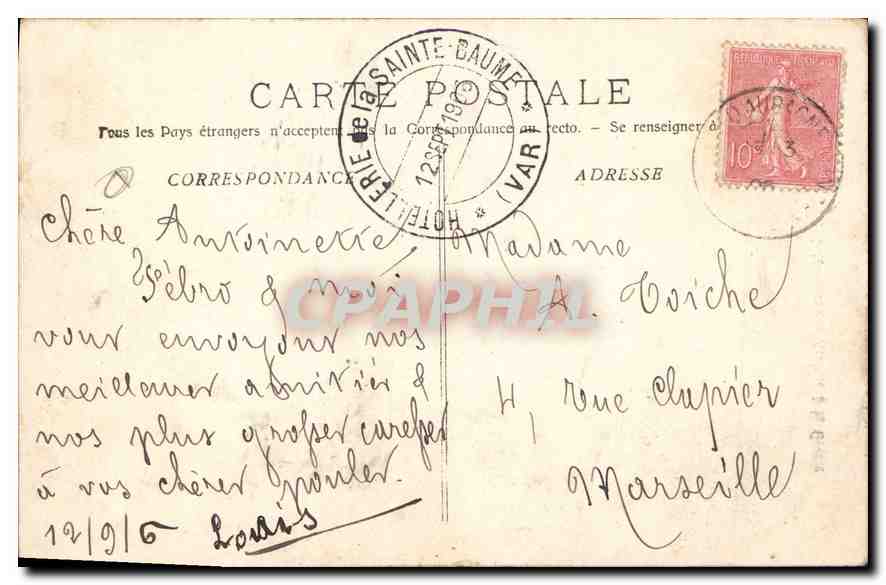 CARTE POSTALE
Tous les Pays étrangers n'acceptent pas la Correspondance au recto. - Se renseigner à
CORRESPONDANCE
ADRESSE
HOTELLERIE de la SAINTE-BAUME * (VAR) *
12 SEPT 190
REPUBLIQUE FRANÇAISE
10
D'AUBAGNE
Chère Antoinette
Pébro & moi
vous envoyons nos
meilleures amitiés &
nos plus grosses caresses
à vos chères poules.
12/9/6 Louis
Madame
A. Toiche
4, rue Clapier
Marseille
CPAPHIL